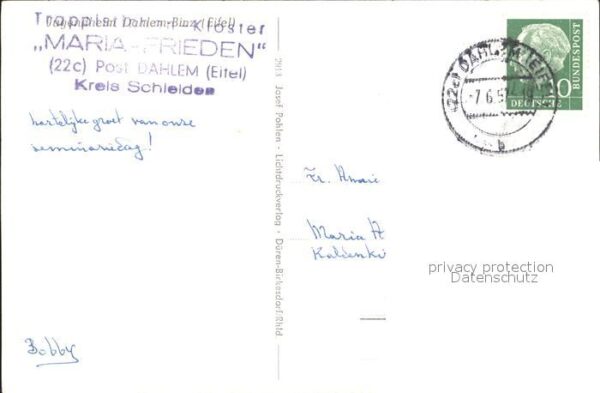 Jugendheim Dahlem-Binz (Eifel)
Trappistinnen-Kloster
„MARIA-FRIEDEN"
(22c) Post DAHLEM (Eifel)
Kreis Schleiden
hartelijke groet van onze
seminariedag!
Bobby
2913 Josef Pohlen - Lichtdruckverlag - Düren-Birkesdorf/Rhld.
(22c) DAHLEM (EIFEL)
-7.6.5
b
DEUTSCHE
BUNDESPOST
Maria
privacy protection
Datenschutz